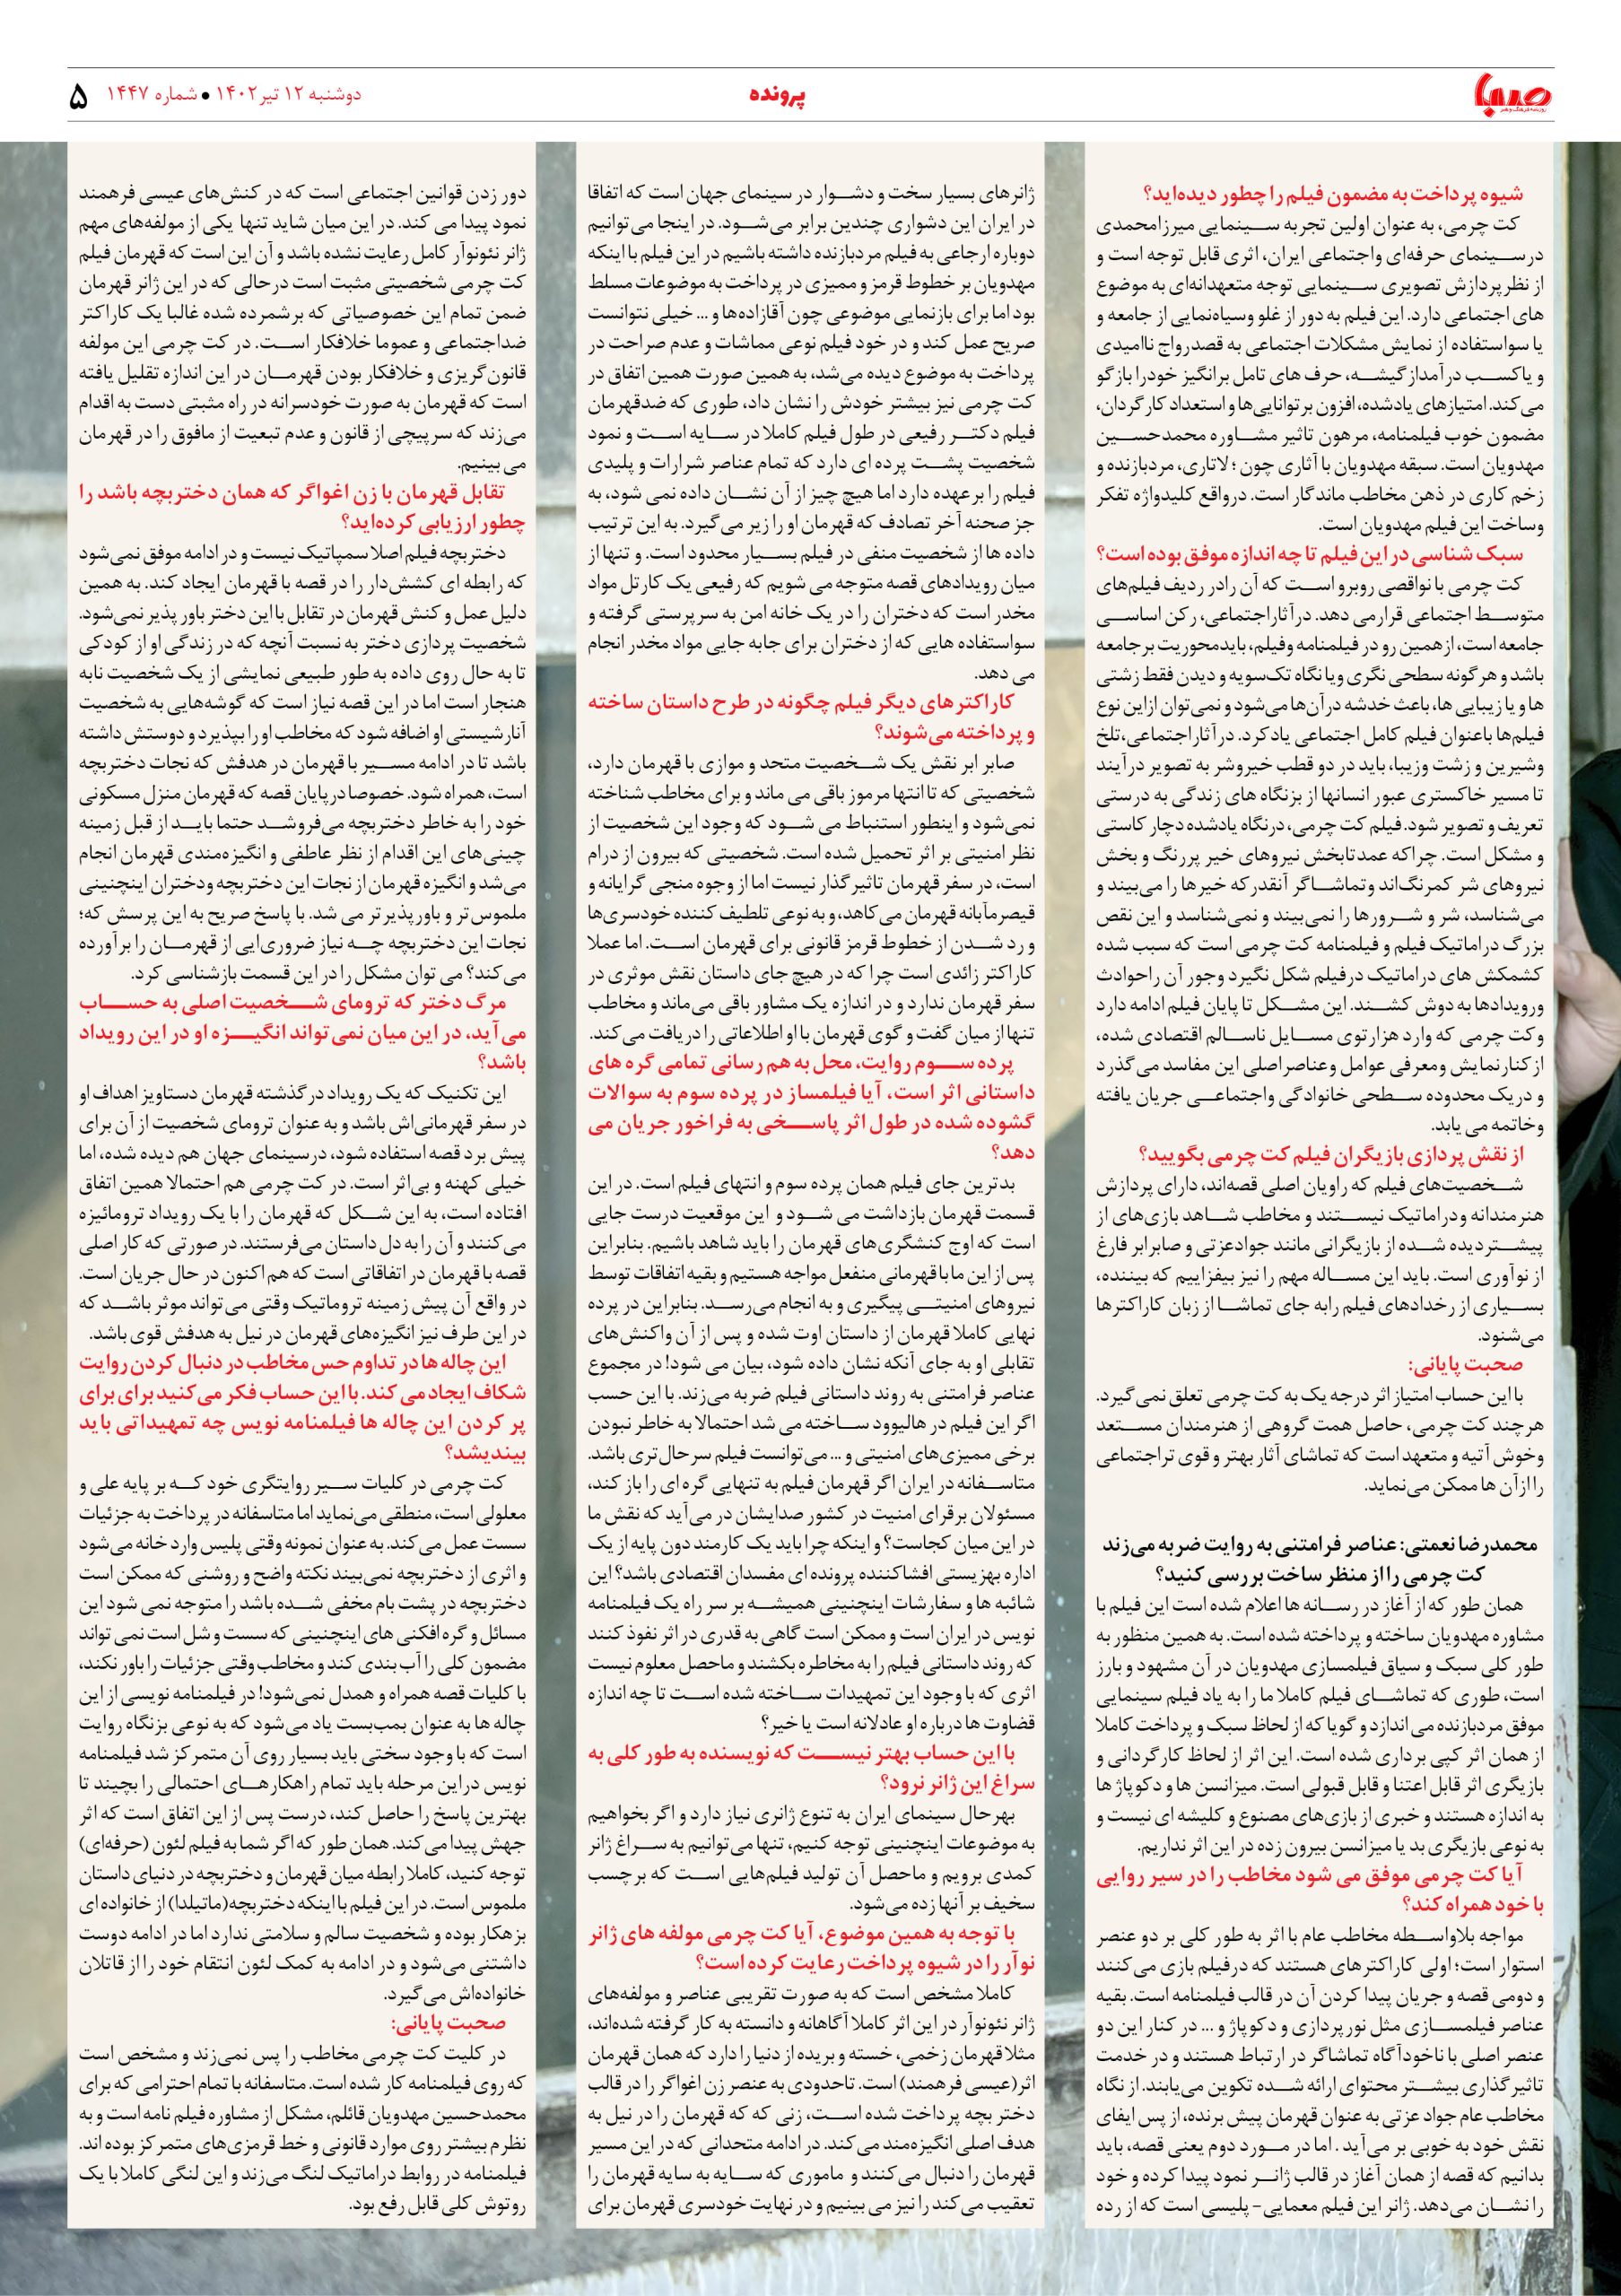 صبا
روزنامه فرهنگ و هنر
پرونده
دوشنبه ۱۲ تیر ۱۴۰۲ ● شماره ۱۴۴۷
۵
شیوه پرداخت به مضمون فیلم را چطور دیده‌اید؟
کت چرمی، به عنوان اولین تجربه سینمایی میرزامحمدی
در سینمای حرفه‌ای واجتماعی ایران، اثری قابل توجه است و
از نظر پردازش تصویری سینمایی توجه متعهدانه‌ای به موضوع
های اجتماعی دارد. این فیلم به دور از غلو وسیاه‌نمایی از جامعه و
یا سواستفاده از نمایش مشکلات اجتماعی به قصد رواج ناامیدی
و یاکسب درآمداز گیشه، حرف های تامل برانگیز خودرا بازگو
می‌کند. امتیازهای یادشده، افزون بر توانایی‌ها و استعداد کارگردان،
مضمون خوب فیلمنامه، مرهون تاثیر مشاوره محمدحسین
مهدویان است. سبقه مهدویان با آثاری چون ؛ لاتاری، مردبازنده و
زخم کاری در ذهن مخاطب ماندگار است. درواقع کلیدواژه تفکر
وساخت این فیلم مهدویان است.
سبک شناسی در این فیلم تا چه اندازه موفق بوده است؟
کت چرمی با نواقصی روبرو است که آن رادر ردیف فیلم‌های
متوسط اجتماعی قرار می دهد. درآثاراجتماعی، رکن اساسی
جامعه است، ازهمین رو در فیلمنامه وفیلم، بایدمحوریت برجامعه
باشد و هرگونه سطحی نگری ویا نگاه تک‌سویه و دیدن فقط زشتی
ها و یا زیبایی ها، باعث خدشه درآن‌ها می‌شود و نمی‌توان ازاین نوع
فیلم‌ها باعنوان فیلم کامل اجتماعی یادکرد. در آثاراجتماعی،تلخ
وشیرین و زشت وزیبا، باید در دو قطب خیروشر به تصویر درآیند
تا مسیر خاکستری عبور انسانها از بزنگاه های زندگی به درستی
تعریف و تصویر شود. فیلم کت چرمی، درنگاه یادشده دچار کاستی
و مشکل است. چراکه عمدتابخش نیروهای خیر پررنگ و بخش
نیروهای شر کمرنگ‌اند وتماشاگر آنقدرکه خیرها را می‌بیند و
می‌شناسد، شر و شرورها را نمی‌بیند و نمی‌شناسد و این نقص
بزرگ دراماتیک فیلم و فیلمنامه کت چرمی است که سبب شده
کشمکش های دراماتیک درفیلم شکل نگیرد وجور آن راحوادث
ورویدادها به دوش کشند. این مشکل تا پایان فیلم ادامه دارد
وکت چرمی که وارد هزارتوی مسایل ناسالم اقتصادی شده،
از کنارنمایش ومعرفی عوامل وعناصراصلی این مفاسد می گذرد
و دریک محدوده سطحی خانوادگی واجتماعی جریان یافته
وخاتمه می یابد.
از نقش پردازی بازیگران فیلم کت چرمی بگویید؟
شخصیت‌های فیلم که راویان اصلی قصه‌اند، دارای پردازش
هنرمندانه ودراماتیک نیستند و مخاطب شاهد بازی‌های از
پیشتردیده شده از بازیگرانی مانند جوادعزتی و صابرابر فارغ
از نوآوری است. باید این مساله مهم را نیز بیفزاییم که بیننده،
بسیاری از رخدادهای فیلم رابه جای تماشا از زبان کاراکترها
می‌شنود.
صحبت پایانی:
با این حساب امتیاز اثر درجه یک به کت چرمی تعلق نمی گیرد.
هرچند کت چرمی، حاصل همت گروهی از هنرمندان مستعد
وخوش آتیه و متعهد است که تماشای آثار بهتر و قوی تراجتماعی
راازآن ها ممکن می‌نماید.
محمدرضا نعمتی: عناصر فرامتنی به روایت ضربه می‌زند
کت چرمی را از منظر ساخت بررسی کنید؟
همان طور که از آغاز در رسانه ها اعلام شده است این فیلم با
مشاوره مهدویان ساخته و پرداخته شده است. به همین منظور به
طور کلی سبک و سیاق فیلمسازی مهدویان در آن مشهود و بارز
است، طوری که تماشای فیلم کاملا ما را به یاد فیلم سینمایی
موفق مردبازنده می اندازد و گویا که از لحاظ سبک و پرداخت کاملا
از همان اثر کپی برداری شده است. این اثر از لحاظ کارگردانی و
بازیگری اثر قابل اعتنا و قابل قبولی است. میزانسن ها و دکوپاژ ها
به اندازه هستند و خبری از بازی‌های مصنوع و کلیشه ای نیست و
به نوعی بازیگری بد یا میزانسن بیرون زده در این اثر نداریم.
آیا کت چرمی موفق می شود مخاطب را در سیر روایی
با خود همراه کند؟
مواجه بلاواسطه مخاطب عام با اثر به طور کلی بر دو عنصر
استوار است؛ اولی کاراکترهای هستند که درفیلم بازی می کنند
و دومی قصه و جریان پیدا کردن آن در قالب فیلمنامه است. بقیه
عناصر فیلمسازی مثل نورپردازی و دکوپاژ و ... در کنار این دو
عنصر اصلی با ناخودآگاه تماشاگر در ارتباط هستند و در خدمت
تاثیرگذاری بیشتر محتوای ارائه شده تکوین می‌یابند. از نگاه
مخاطب عام جواد عزتی به عنوان قهرمان پیش برنده، از پس ایفای
نقش خود به خوبی بر می‌آید . اما در مورد دوم یعنی قصه، باید
بدانیم که قصه از همان آغاز در قالب ژانر نمود پیدا کرده و خود
را نشان می‌دهد. ژانر این فیلم معمایی- پلیسی است که از رده
ژانرهای بسیار سخت و دشوار در سینمای جهان است که اتفاقا
در ایران این دشواری چندین برابر می‌شود. در اینجا می توانیم
دوباره ارجاعی به فیلم مردبازنده داشته باشیم در این فیلم با اینکه
مهدویان بر خطوط قرمز و ممیزی در پرداخت به موضوعات مسلط
بود اما برای بازنمایی موضوعی چون آقازاده‌ها و ... خیلی نتوانست
صریح عمل کند و در خود فیلم نوعی مماشات و عدم صراحت در
پرداخت به موضوع دیده می‌شد، به همین صورت همین اتفاق در
کت چرمی نیز بیشتر خودش را نشان داد، طوری که ضدقهرمان
فیلم دکتر رفیعی در طول فیلم کاملا در سایه است و نمود
شخصیت پشت پرده ای دارد که تمام عناصر شرارات و پلیدی
فیلم را برعهده دارد اما هیچ چیز از آن نشان داده نمی شود، به
جز صحنه آخر تصادف که قهرمان او را زیر می گیرد. به این ترتیب
داده ها از شخصیت منفی در فیلم بسیار محدود است. و تنها از
میان رویدادهای قصه متوجه می شویم که رفیعی یک کارتل مواد
مخدر است که دختران را در یک خانه امن به سرپرستی گرفته و
سواستفاده هایی که از دختران برای جابه جایی مواد مخدر انجام
می دهد.
کاراکترهای دیگر فیلم چگونه در طرح داستان ساخته
و پرداخته می‌شوند؟
صابر ابر نقش یک شخصیت متحد و موازی با قهرمان دارد،
شخصیتی که تا انتها مرموز باقی می ماند و برای مخاطب شناخته
نمی‌شود و اینطور استنباط می شود که وجود این شخصیت از
نظر امنیتی بر اثر تحمیل شده است. شخصیتی که بیرون از درام
است، در سفر قهرمان تاثیر گذار نیست اما از وجوه منجی گرایانه و
قیصرمآبانه قهرمان می کاهد، و به نوعی تلطیف کننده خودسری‌ها
و رد شدن از خطوط قرمز قانونی برای قهرمان است. اما عملا
کاراکتر زائدی است چرا که در هیچ جای داستان نقش موثری در
سفر قهرمان ندارد و در اندازه یک مشاور باقی می‌ماند و مخاطب
تنها از میان گفت و گوی قهرمان با او اطلاعاتی را دریافت می کند.
پرده سوم روایت، محل به هم رسانی تمامی گره های
داستانی اثر است، آیا فیلمساز در پرده سوم به سوالات
گشوده شده در طول اثر پاسخی به فراخور جریان می
دهد؟
بدترین جای فیلم همان پرده سوم و انتهای فیلم است. در این
قسمت قهرمان بازداشت می شود و این موقعیت درست جایی
است که اوج کنشگری‌های قهرمان را باید شاهد باشیم. بنابراین
پس از این ما با قهرمانی منفعل مواجه هستیم و بقیه اتفاقات توسط
نیروهای امنیتی پیگیری و به انجام می‌رسد. بنابراین در پرده
نهایی کاملا قهرمان از داستان اوت شده و پس از آن واکنش‌های
تقابلی او به جای آنکه نشان داده شود، بیان می شود! در مجموع
عناصر فرامتنی به روند داستانی فیلم ضربه می‌زند. با این حسب
اگر این فیلم در هالیوود ساخته می شد احتمالا به خاطر نبودن
برخی ممیزی‌های امنیتی و ... می‌توانست فیلم سرحال تری باشد.
متاسفانه در ایران اگر قهرمان فیلم به تنهایی گره ای را باز کند،
مسئولان برقرای امنیت در کشور صدایشان در می‌آید که نقش ما
در این میان کجاست؟ و اینکه چرا باید یک کارمند دون پایه از یک
اداره بهزیستی افشاکننده پرونده ای مفسدان اقتصادی باشد؟ این
شائبه ها و سفارشات اینچنینی همیشه بر سر راه یک فیلمنامه
نویس در ایران است و ممکن است گاهی به قدری در اثر نفوذ کنند
که روند داستانی فیلم را به مخاطره بکشند و ماحصل معلوم نیست
اثری که با وجود این تمهیدات ساخته شده است تا چه اندازه
قضاوت ها درباره او عادلانه است یا خیر؟
با این حساب بهتر نیست که نویسنده به طور کلی به
سراغ این ژانر نرود؟
بهرحال سینمای ایران به تنوع ژانری نیاز دارد و اگر بخواهیم
به موضوعات اینچنینی توجه کنیم، تنها می‌توانیم به سراغ ژانر
کمدی برویم و ماحصل آن تولید فیلم‌هایی است که برچسب
سخیف بر آنها زده می‌شود.
با توجه به همین موضوع، آیا کت چرمی مولفه های ژانر
نوآر را در شیوه پرداخت رعایت کرده است؟
کاملا مشخص است که به صورت تقریبی عناصر و مولفه‌های
ژانر نئونوآر در این اثر کاملا آگاهانه و دانسته به کار گرفته شده‌اند،
مثلا قهرمان زخمی، خسته و بریده از دنیا را دارد که همان قهرمان
اثر(عیسی فرهمند) است. تاحدودی به عنصر زن اغواگر را در قالب
دختر بچه پرداخت شده است، زنی که که قهرمان را در نیل به
هدف اصلی انگیزه‌مند می کند. در ادامه متحدانی که در این مسیر
قهرمان را دنبال می کنند و ماموری که سایه به سایه قهرمان را
تعقیب می کند را نیز می بینیم و در نهایت خودسری قهرمان برای
دور زدن قوانین اجتماعی است که در کنش‌های عیسی فرهمند
نمود پیدا می کند. در این میان شاید تنها یکی از مولفه‌های مهم
ژانر نئونوآر کامل رعایت نشده باشد و آن این است که قهرمان فیلم
کت چرمی شخصیتی مثبت است درحالی که در این ژانر قهرمان
ضمن تمام این خصوصیاتی که برشمرده شده غالبا یک کاراکتر
ضداجتماعی و عموما خلافکار است. در کت چرمی این مولفه
قانون گریزی و خلافکار بودن قهرمان در این اندازه تقلیل یافته
است که قهرمان به صورت خودسرانه در راه مثبتی دست به اقدام
می‌زند که سرپیچی از قانون و عدم تبعیت از مافوق را در قهرمان
می بینیم.
تقابل قهرمان با زن اغواگر که همان دختربچه باشد را
چطور ارزیابی کرده‌اید؟
دختربچه فیلم اصلا سمپاتیک نیست و در ادامه موفق نمی‌شود
که رابطه ای کشش‌دار را در قصه با قهرمان ایجاد کند. به همین
دلیل عمل و کنش قهرمان در تقابل با این دختر باور پذیر نمی‌شود.
شخصیت پردازی دختر به نسبت آنچه که در زندگی او از کودکی
تا به حال روی داده به طور طبیعی نمایشی از یک شخصیت نابه
هنجار است اما در این قصه نیاز است که گوشه‌هایی به شخصیت
آنارشیستی او اضافه شود که مخاطب او را بپذیرد و دوستش داشته
باشد تا در ادامه مسیر با قهرمان در هدفش که نجات دختربچه
است، همراه شود. خصوصا درپایان قصه که قهرمان منزل مسکونی
خود را به خاطر دختربچه می‌فروشد حتما باید از قبل زمینه
چینی‌های این اقدام از نظر عاطفی و انگیزه‌مندی قهرمان انجام
می‌شد و انگیزه قهرمان از نجات این دختربچه ودختران اینچنینی
ملموس‌تر و باور پذیرتر می شد. با پاسخ صریح به این پرسش که؛
نجات این دختربچه چه نیاز ضروری‌ایی از قهرمان را برآورده
می‌کند؟ می توان مشکل را در این قسمت بازشناسی کرد.
مرگ دختر که ترومای شخصیت اصلی به حساب
می‌آید، در این میان نمی تواند انگیزه او در این رویداد
باشد؟
این تکنیک که یک رویداد در گذشته قهرمان دستاویز اهداف او
در سفر قهرمانی‌اش باشد و به عنوان ترومای شخصیت از آن برای
پیش برد قصه استفاده شود، درسینمای جهان هم دیده شده، اما
خیلی کهنه و بی‌اثر است. در کت چرمی هم احتمالا همین اتفاق
افتاده است، به این شکل که قهرمان را با یک رویداد ترومائیزه
می‌کنند و آن را به دل داستان می‌فرستند. در صورتی که کار اصلی
قصه با قهرمان در اتفاقاتی است که هم اکنون در حال جریان است.
در واقع آن پیش زمینه تروماتیک وقتی می تواند موثر باشد که
در این طرف نیز انگیزه‌های قهرمان در نیل به هدفش قوی باشد.
این چاله ها در تداوم حس مخاطب در دنبال کردن روایت
شکاف ایجاد می کند. با این حساب فکر می کنید برای برای
پر کردن این چاله ها فیلمنامه نویس چه تمهیداتی باید
بیندیشد؟
کت چرمی در کلیات سیر روایتگری خود که بر پایه علی و
معلولی است، منطقی می‌نماید اما متاسفانه در پرداخت به جزئیات
سست عمل می کند. به عنوان نمونه وقتی پلیس وارد خانه می‌شود
و اثری از دختربچه نمی‌بیند نکته واضح و روشنی که ممکن است
دختربچه در پشت بام مخفی شده باشد را متوجه نمی شود این
مسائل و گره افکنی های اینچنینی که سست و شل است نمی تواند
مضمون کلی را آب بندی کند و مخاطب وقتی جزئیات را باور نکند،
با کلیات قصه همراه و همدل نمی‌شود! در فیلمنامه نویسی از این
چاله ها به عنوان بمب‌بست یاد می‌شود که به نوعی بزنگاه روایت
است که با وجود سختی باید بسیار روی آن متمرکز شد فیلمنامه
نویس دراین مرحله باید تمام راهکارهای احتمالی را بچیند تا
بهترین پاسخ را حاصل کند، درست پس از این اتفاق است که اثر
جهش پیدا می کند. همان طور که اگر شما به فیلم لئون (حرفه‌ای)
توجه کنید، کاملا رابطه میان قهرمان و دختربچه در دنیای داستان
ملموس است. در این فیلم با اینکه دختربچه(ماتیلدا) از خانواده ای
بزهکار بوده و شخصیت سالم و سلامتی ندارد اما در ادامه دوست
داشتنی می‌شود و در ادامه به کمک لئون انتقام خود را از قاتلان
خانواده‌اش می گیرد.
صحبت پایانی:
در کلیت کت چرمی مخاطب را پس نمی‌زند و مشخص است
که روی فیلمنامه کار شده است. متاسفانه با تمام احترامی که برای
محمدحسین مهدویان قائلم، مشکل از مشاوره فیلم نامه است و به
نظرم بیشتر روی موارد قانونی و خط قرمزی‌های متمرکز بوده اند.
فیلمنامه در روابط دراماتیک لنگ می‌زند و این لنگی کاملا با یک
روتوش کلی قابل رفع بود.